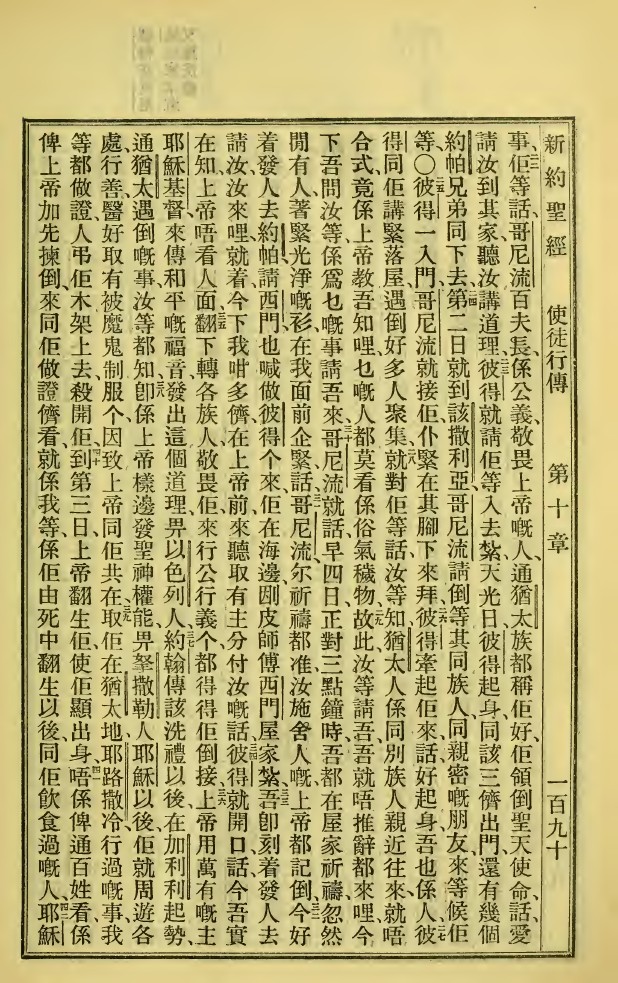 新約聖經 使徒行傳 第十章 一百九十
事、佢等話、哥尼流百夫長、係公義敬畏上帝嘅人、通猶太族都稱佢好、佢領倒聖天使命、話愛
請汝到其家、聽汝講道理、彼得就請佢等入去紮、天光日彼得起身、同該三儕出門、還有幾個
約帕兄弟同下去、第二日就到該撒利亞、哥尼流請倒等其同族人、同親密嘅朋友、來等候佢
等、〇彼得一入門、哥尼流就接佢、仆緊在其腳下來拜、彼得牽起佢來話、好起身、吾也係人、彼
得同佢講緊落屋、遇倒好多人聚集、就對佢等話、汝等知猶太人係同別族人親近往來、就唔
合式、竟係上帝教吾知哩、乜嘅人都莫看係俗氣穢物、故此汝等請吾、吾就唔推辭都來哩、今
下吾問汝等、係爲乜嘅事請吾來、哥尼流就話、早四日正對三點鐘時、吾都在屋家祈禱、忽然
閒有人、著緊光淨嘅衫、在我面前企緊、話、哥尼流、尔祈禱都准、汝施舍人嘅、上帝都記倒、今好
着發人去約帕、請西門也喊做彼得个來、佢在海邊、剫皮師傅西門屋家紮、吾卽刻着發人去
請汝、汝來哩就着、今下我咁多儕在上帝前來聽、取有主分付汝嘅話、彼得就開口話、今吾實
在知、上帝唔看人面、翻下轉各族人、敬畏佢來行公行義个、都得得佢倒接、上帝用萬有嘅主
耶穌基督、來傳和平嘅福音、發出這個道理、畀以色列人、約翰傳該洗禮以後、在加利利起勢、
通猶太遇倒嘅事、汝等都知、卽係上帝樣邊發聖神權能、畀拏撒勒人耶穌、以後佢就周遊各
處行善、醫好取有被魔鬼制服个、因致上帝同佢共在、取佢在猶太地、耶路撒冷行過嘅事、我
等都做證、人弔佢木架上去殺開佢、到第三日、上帝翻生佢、使佢顯出身、唔係俾通百姓看、係
俾上帝加先揀倒、來同佢做證儕看、就係我等、係佢由死中翻生以後、同佢飲食過嘅人、耶穌